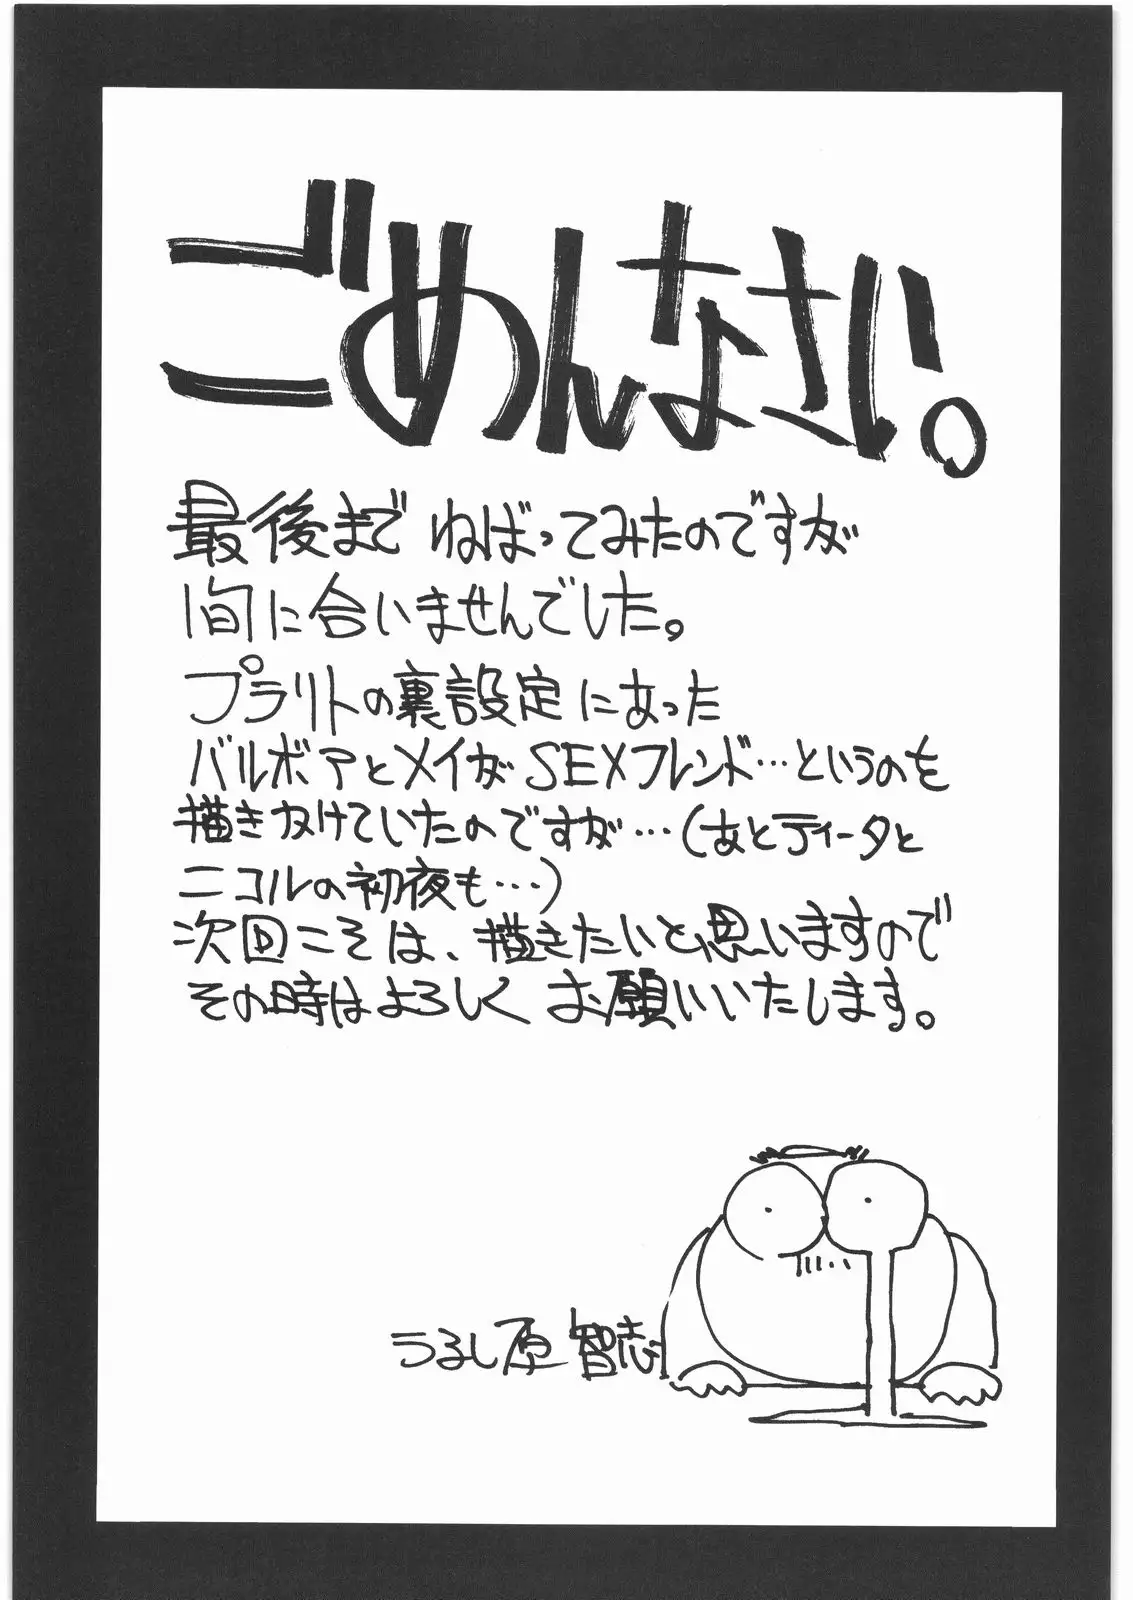 ごめんなさい。
最後まで ねばってみたのですが
間に合いませんでした。
プラリトの裏設定にあった
バルボアとメイがSEXフレンド…というのを
描きかけていたのですが…(あとティータと
ニコルの初夜も…)
次回こそは、描きたいと思いますので
その時はよろしく お願いいたします。
うるし原 智志